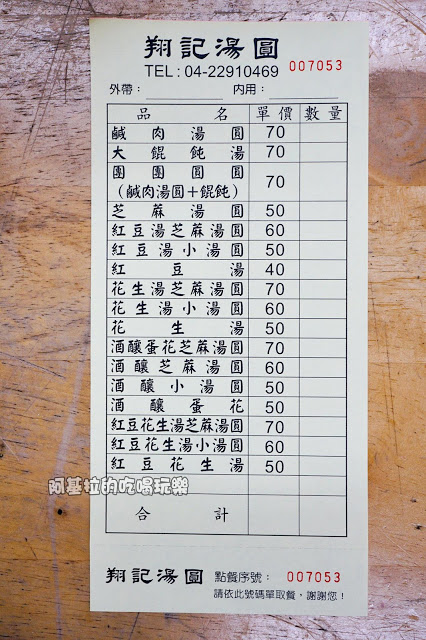 翔記湯圓
TEL:04-22910469 007053
外帶: 內用:
品名 單價 數量
鹹肉湯圓 70
大餛飩湯 70
團團圓圓
(鹹肉湯圓+餛飩) 70
芝蔴湯圓 50
紅豆湯芝蔴湯圓 60
紅豆湯小湯圓 50
紅豆湯 40
花生湯芝蔴湯圓 70
花生湯小湯圓 60
花生湯 50
酒釀蛋花芝蔴湯圓 70
酒釀芝蔴湯圓 60
酒釀小湯圓 50
酒釀蛋花 50
紅豆花生湯芝蔴湯圓 70
紅豆花生湯小湯圓 60
紅豆花生湯 50
阿基拉的吃喝玩樂
合計
翔記湯圓 點餐序號: 007053
請依此號碼單取餐,謝謝您!